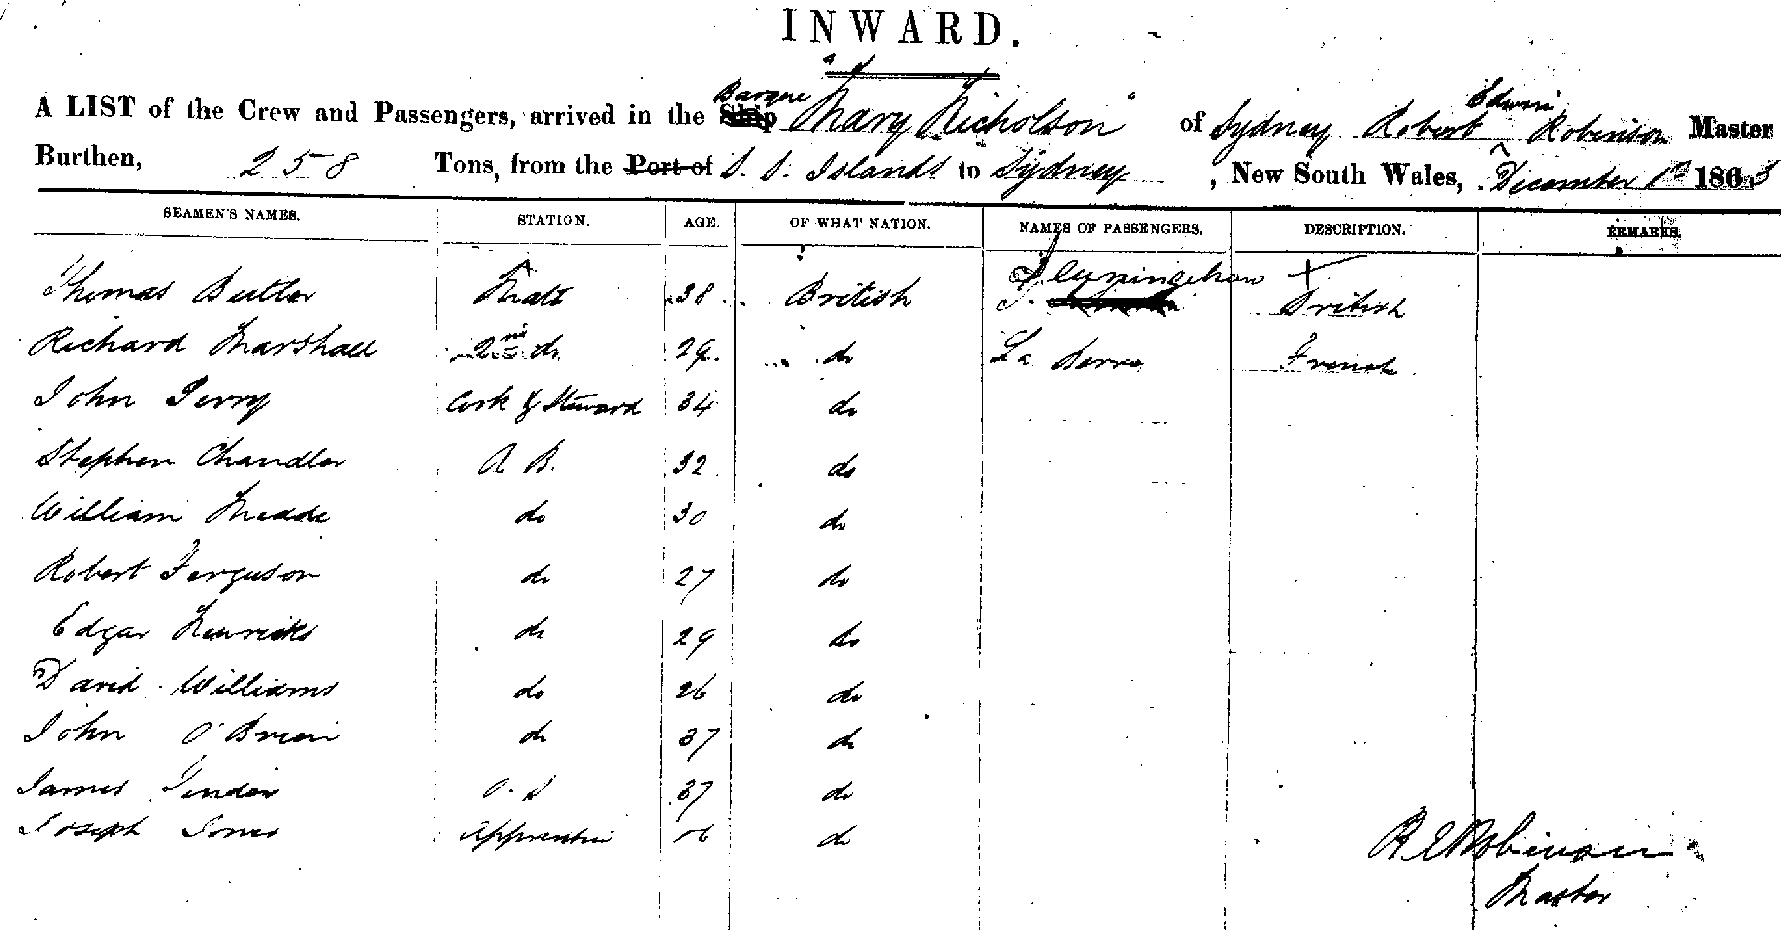 INWARD.
A LIST of the Crew and Passengers, arrived in the Ship Barque "Mary Nicholson" of Sydney Robert Edwin Robinson Master
Burthen, 258 Tons, from the Port of S. S. Islands to Sydney, New South Wales, December 1st 1863
SEAMEN'S NAMES. STATION. AGE. OF WHAT NATION. NAMES OF PASSENGERS. DESCRIPTION. REMARKS.
Thomas Butler Mate 38 British J. Cunningham British
Richard Marshall 2nd do 29 do La French
John Perry Cook & Steward 34 do
Stephen Chandler A B. 32 do
William Meade do 30 do
Robert Ferguson do 27 do
Edgar do 29 do
David Williams do 26 do
John O'Brien do 37 do
James O. S 37 do
Joseph Jones Apprentice 16 do
R E Robinson
Master